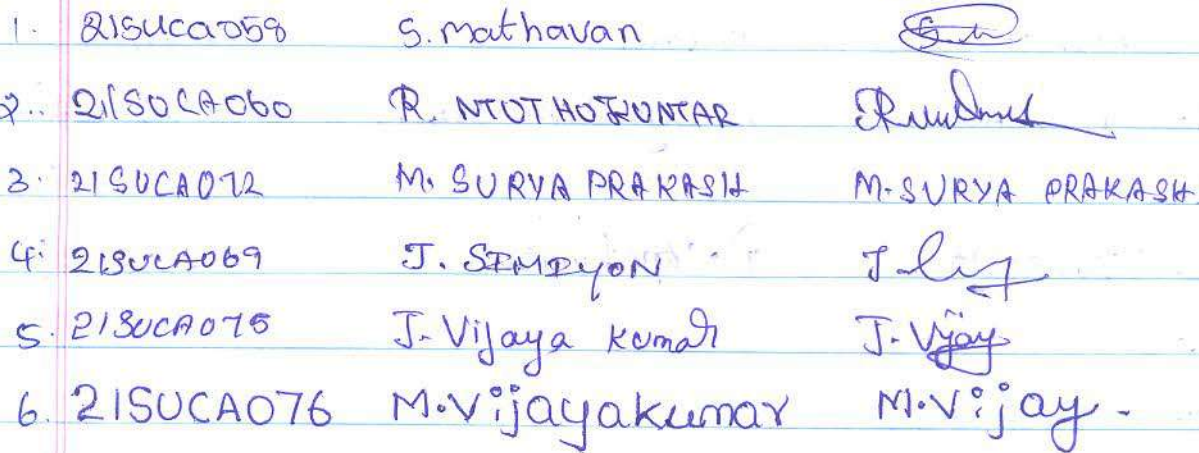 1. 21SUCA058 S. Mathavan
2. 21SUCA060 R.
3. 21SUCA072 M. SURYA PRAKASH M. SURYA PRAKASH.
4. 21SUCA069 J. SIMIYON J.
5. 21SUCA075 J. Vijaya Kumar J. Vijay
6. 21SUCA076 M. Vijayakumar M. Vijay.